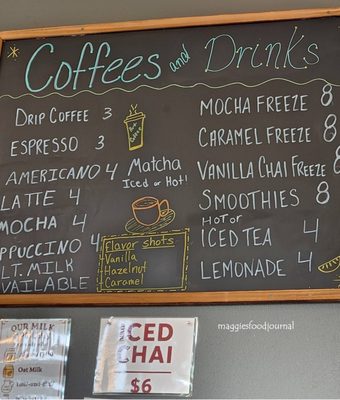 Coffees and Drinks
DRIP COFFEE 3
ESPRESSO 3
AMERICANO 4
LATTE 4
MOCHA 4
PPUCCINO 4
LT. MILK
AVAILABLE
Matcha
Iced or Hot!
Flavor shots
Vanilla
Hazelnut
Caramel
MOCHA FREEZE 8
CARAMEL FREEZE 8
VANILLA CHAI FREEZE 8
SMOOTHIES 8
HOT or
ICED TEA 4
LEMONADE 4
OUR MILK
Oat Milk
ICED
CHAI
$6
maggiesfoodjournal